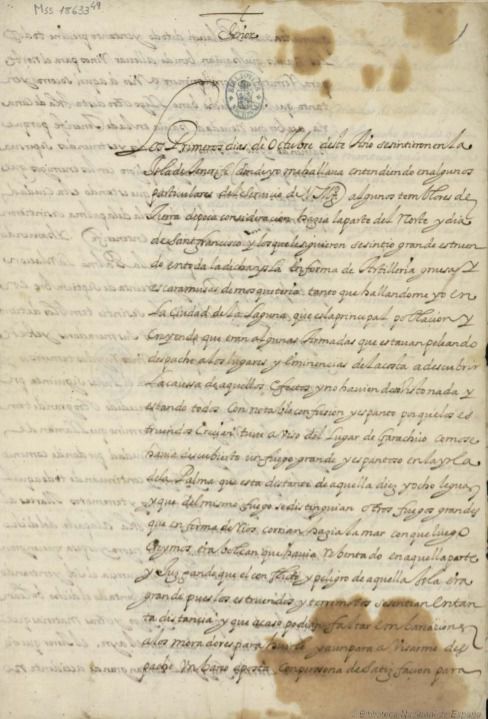 Mss 18633 49
Señor
1
Los Primeros dias de Octubre deste Año sesintieron en la
Isla de Tenerife (donde yo mehallava entendiendo en algunos
particulares del servicio de V. Mg) algunos temblores de
tierra depoca consideracion hazia laparte del Norte y dia
de Sant francisco y los que le siguieron sesintio grande estruen
do en toda la dicha ysla en forma de Artilleria gruesa y
escaramusas demosqueteria tanto que hallandome yo en
La Ciudad de la Laguna que es la principal poblacion y
Creyendo que eran algunas Armadas que estavan peleando
despache alos lugares y Eminencias de la costa a descubrir
La caussa de aquellos Effectos y no haviendose visto nada y
estando todos Con notable confusion y espanto porque los es
truendos Crecian tuve aviso del Lugar de Garachico comose
havia descubierto un fuego grande y espantoso en la ysla
dela Palma que esta distante de aquella diez y ocho leguas
y que del mismo fuego sedistinguian otros fuegos grandes
que en forma de Rios corrian hazia la mar con que luego
Creymos era bolcan que havia Rebentado en aquella parte
y Juzgando que el conflicto y peligro de aquella Isla era
grande pues los estruendos y terremotos sesentian en tan
ta distancia y que acaso podian faltar embarcaciones
a los moradores para y aun para avisarme des
pache Un barco aposta Con persona de satisfacion para
Biblioteca Nacional de España